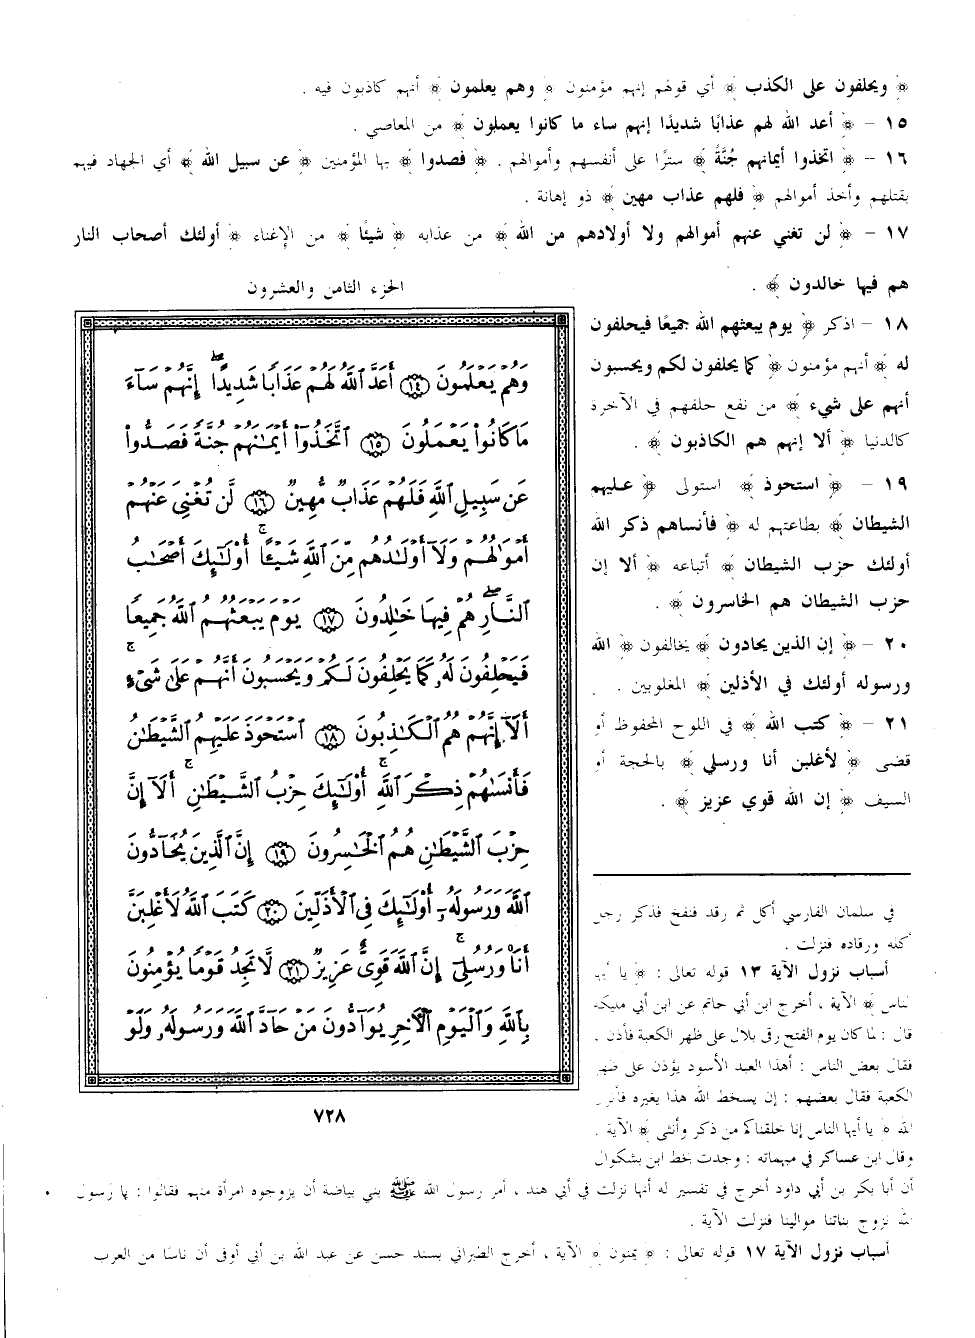 ﴿ ويحلفون على الكذب ﴾ أي قولهم إنهم مؤمنون ﴿ وهم يعلمون ﴾ أنهم كاذبون فيه .
١٥ – ﴿ أعد الله لهم عذابًا شديدًا إنهم ساء ما كانوا يعملون ﴾ من المعاصي .
١٦ – ﴿ اتخذوا أيمانهم جُنَّةً ﴾ سترًا على أنفسهم وأموالهم . ﴿ فصدوا ﴾ بها المؤمنين ﴿ عن سبيل الله ﴾ أي الجهاد فيهم
بقتلهم وأخذ أموالهم ﴿ فلهم عذاب مهين ﴾ ذو إهانة .
١٧ – ﴿ لن تغني عنهم أموالهم ولا أولادهم من الله ﴾ من عذابه ﴿ شيئًا ﴾ من الإغناء ﴿ أولئك أصحاب النار
هم فيها خالدون ﴾ .
١٨ – اذكر ﴿ يوم يبعثهم الله جميعًا فيحلفون
له ﴾ أنهم مؤمنون ﴿ كما يحلفون لكم ويحسبون
أنهم على شيء ﴾ من نفع حلفهم في الآخرة
كالدنيا ﴿ ألا إنهم هم الكاذبون ﴾ .
١٩ – ﴿ استحوذ ﴾ استولى ﴿ عليهم
الشيطان ﴾ بطاعتهم له ﴿ فأنساهم ذكر الله
أولئك حزب الشيطان ﴾ أتباعه ﴿ ألا إن
حزب الشيطان هم الخاسرون ﴾ .
٢٠ – ﴿ إن الذين يحادون ﴾ يخالفون ﴿ الله
ورسوله أولئك في الأذلين ﴾ المغلوبين .
٢١ – ﴿ كتب الله ﴾ في اللوح المحفوظ أو
قضى ﴿ لأغلبن أنا ورسلي ﴾ بالحجة أو
السيف ﴿ إن الله قوي عزيز ﴾ .
الجزء الثامن والعشرون
وَهُمْ يَعْلَمُونَ ١٤ أَعَدَّ ٱللَّهُ لَهُمْ عَذَابًا شَدِيدًا إِنَّهُمْ سَآءَ
مَا كَانُوا۟ يَعْمَلُونَ ١٥ ٱتَّخَذُوٓا۟ أَيْمَٰنَهُمْ جُنَّةً فَصَدُّوا۟
عَن سَبِيلِ ٱللَّهِ فَلَهُمْ عَذَابٌ مُّهِينٌ ١٦ لَّن تُغْنِىَ عَنْهُمْ
أَمْوَٰلُهُمْ وَلَآ أَوْلَٰدُهُم مِّنَ ٱللَّهِ شَيْـًٔا أُو۟لَٰٓئِكَ أَصْحَٰبُ
ٱلنَّارِ هُمْ فِيهَا خَٰلِدُونَ ١٧ يَوْمَ يَبْعَثُهُمُ ٱللَّهُ جَمِيعًا
فَيَحْلِفُونَ لَهُۥ كَمَا يَحْلِفُونَ لَكُمْ وَيَحْسَبُونَ أَنَّهُمْ عَلَىٰ شَىْءٍ
أَلَآ إِنَّهُمْ هُمُ ٱلْكَٰذِبُونَ ١٨ ٱسْتَحْوَذَ عَلَيْهِمُ ٱلشَّيْطَٰنُ
فَأَنسَىٰهُمْ ذِكْرَ ٱللَّهِ أُو۟لَٰٓئِكَ حِزْبُ ٱلشَّيْطَٰنِ أَلَآ إِنَّ
حِزْبَ ٱلشَّيْطَٰنِ هُمُ ٱلْخَٰسِرُونَ ١٩ إِنَّ ٱلَّذِينَ يُحَآدُّونَ
ٱللَّهَ وَرَسُولَهُۥٓ أُو۟لَٰٓئِكَ فِى ٱلْأَذَلِّينَ ٢٠ كَتَبَ ٱللَّهُ لَأَغْلِبَنَّ
أَنَا۠ وَرُسُلِىٓ إِنَّ ٱللَّهَ قَوِىٌّ عَزِيزٌ ٢١ لَّا تَجِدُ قَوْمًا يُؤْمِنُونَ
بِٱللَّهِ وَٱلْيَوْمِ ٱلْءَاخِرِ يُوَآدُّونَ مَنْ حَآدَّ ٱللَّهَ وَرَسُولَهُۥ وَلَوْ
٧٢٨
في سلمان الفارسي أكل ثم رقد فنفخ فذكر رجل
أكله ورقاده فنزلت .
أسباب نزول الآية ١٣ قوله تعالى : ﴿ يا أيها
الناس ﴾ الآية ، أخرج ابن أبي حاتم عن ابن أبي مليكة
قال : لما كان يوم الفتح رقى بلال على ظهر الكعبة فأذن ،
فقال بعض الناس : أهذا العبد الأسود يؤذن على ظهر
الكعبة فقال بعضهم : إن يسخط الله هذا يغيره فأنزل
الله ﴿ يا أيها الناس إنا خلقناكم من ذكر وأنثى ﴾ الآية .
وقال ابن عساكر في مبهماته : وجدت بخط ابن بشكوال
أن أبا بكر بن أبي داود أخرج في تفسير له أنها نزلت في أبي هند ، أمر رسول الله ﷺ بني بياضة أن يزوجوه امرأة منهم فقالوا : يا رسول
الله نزوج بناتنا موالينا فنزلت الآية .
أسباب نزول الآية ١٧ قوله تعالى : ﴿ يمنون ﴾ الآية ، أخرج الطبراني بسند حسن عن عبد الله بن أبي أوفى أن ناسًا من العرب